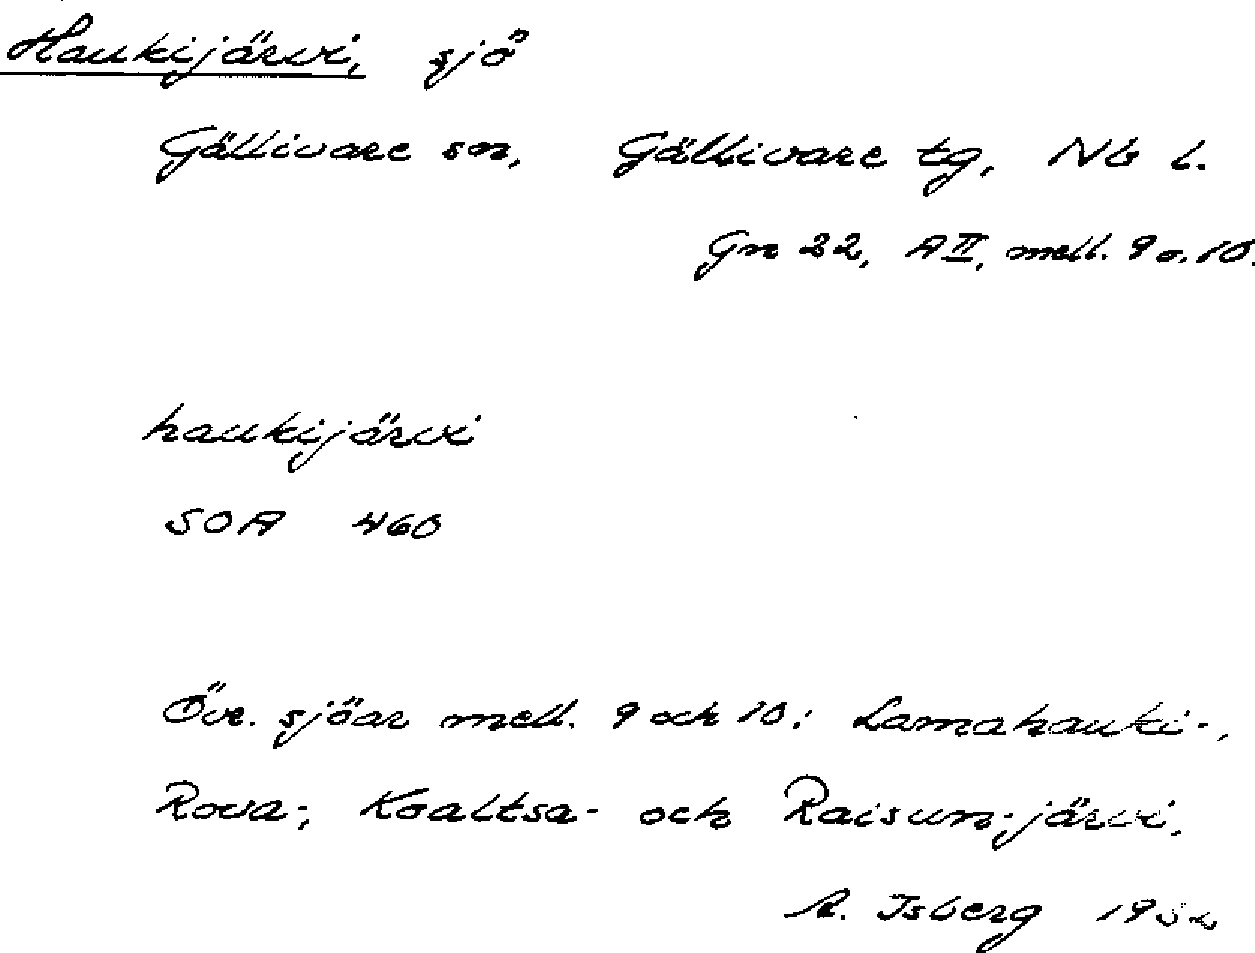 Haukijärvi, sjö
Gällivare sn, Gällivare tg, Nb l.
Gn 22, AII, mell. 9 o. 10.
haukijärvi
SOA 460
Övr. sjöar mell. 9 och 10: Lamahauki-,
Rova-, Koaltsa- och Raisun-järvi.
A. Isberg